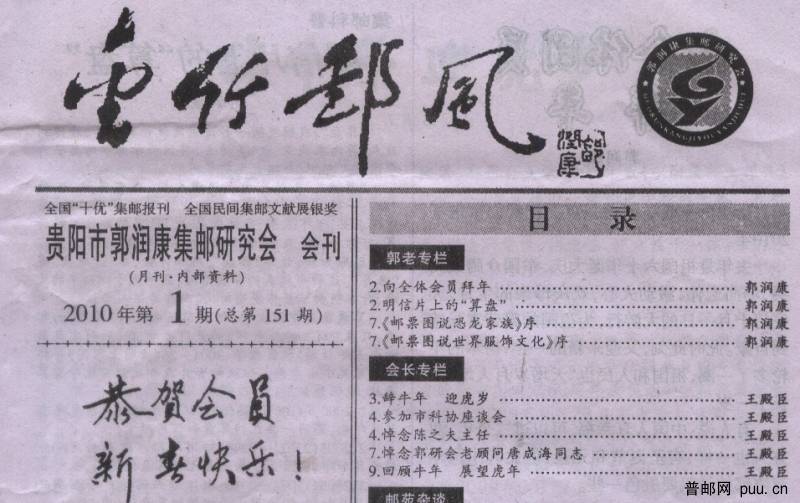 金竹邮风
郭润康
郭润康集邮研究会
全国“十优”集邮报刊　全国民间集邮文献展银奖
贵阳市郭润康集邮研究会　会刊
(月刊·内部资料)
2010年第1期(总第151期)
恭贺会员
新春快乐！
目　录
郭老专栏
2.向全体会员拜年 郭润康
2.明信片上的“算盘” 郭润康
7.《邮票图说恐龙家族》序 郭润康
7.《邮票图说世界服饰文化》序 郭润康
会长专栏
3.辞牛年　迎虎岁 王殿臣
4.参加市科协座谈会 王殿臣
4.悼念陈之夫主任 王殿臣
4.悼念郭研会老顾问唐成海同志 王殿臣
9.回顾牛年　展望虎年 王殿臣
邮苑杂谈
普邮网 puu.cn